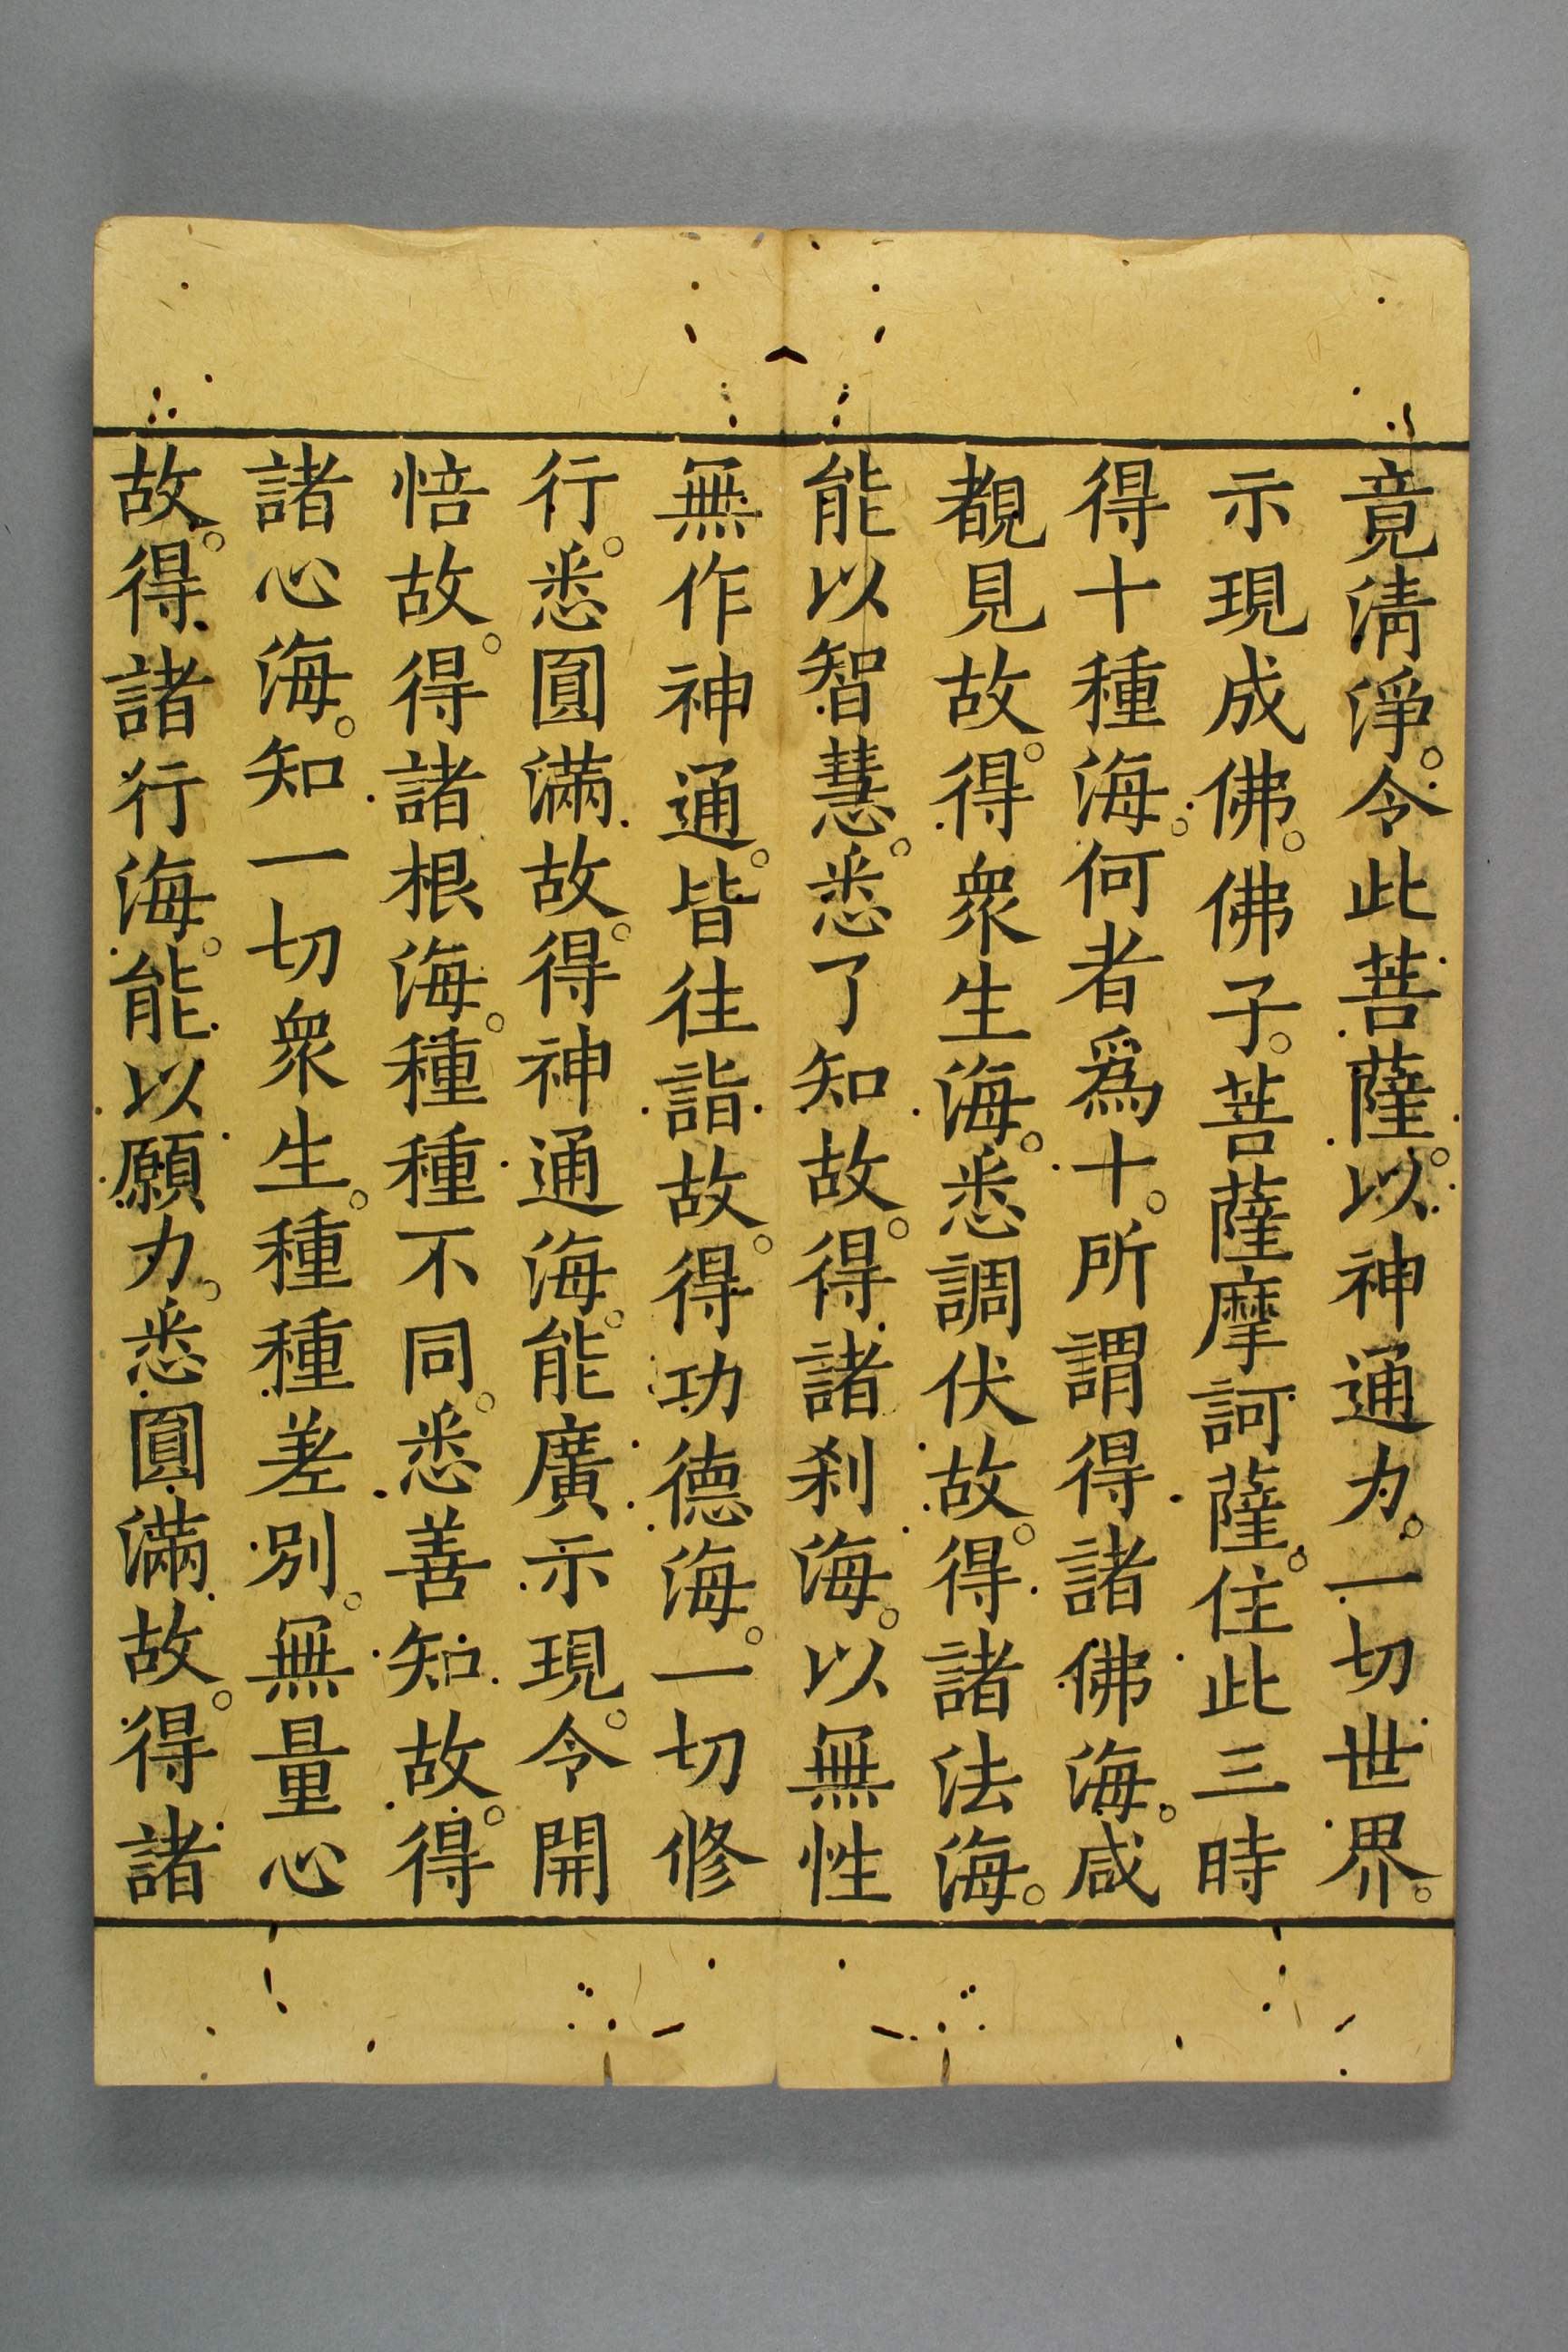 竟清淨。令此菩薩。以神通力。一切世界。
示現成佛。佛子。菩薩摩訶薩。住此三昧
得十種海。何者爲十。所謂得諸佛海。咸
覩見故。得衆生海。悉調伏故。得諸法海。
能以智慧。悉了知故。得諸刹海。以無性
無作神通。皆往詣故。得功德海。一切修
行。悉圓滿故。得神通海。能廣示現。令開
悟故。得諸根海。種種不同。悉善知故。得
諸心海。知一切衆生。種種差別。無量心
故。得諸行海。能以願力。悉圓滿故。得諸